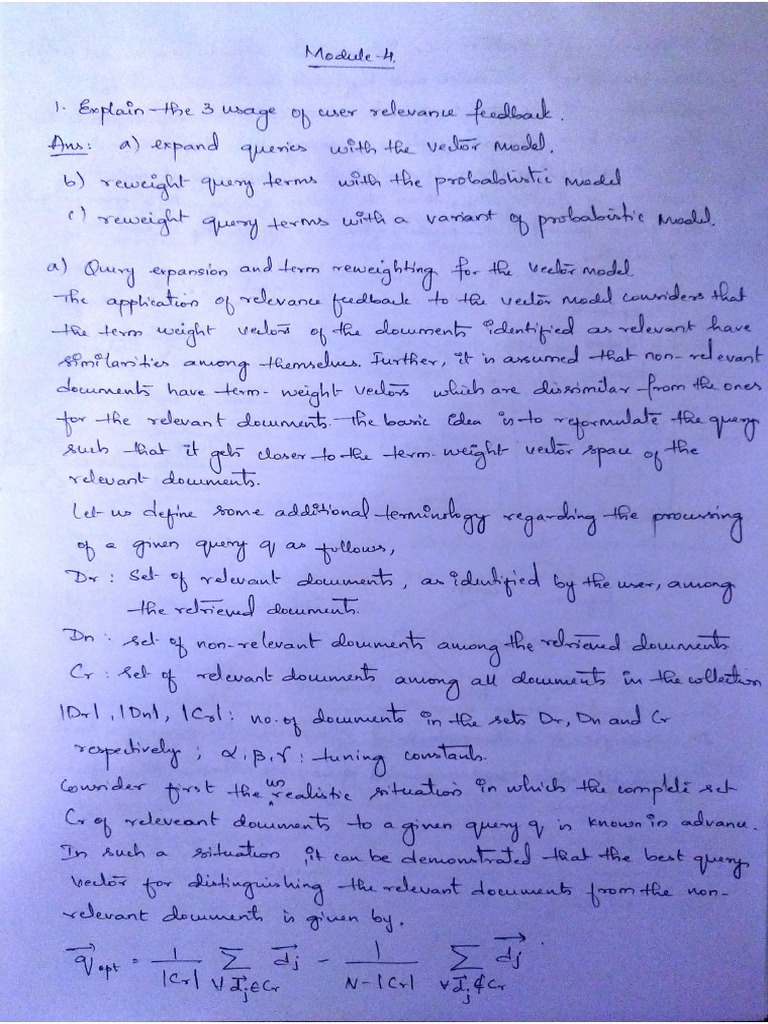 Module-4.
1. Explain the 3 usage of user relevance feedback.
Ans: a) expand queries with the vector model.
b) reweight query terms with the probablistic model
c) reweight query terms with a variant of probabistic model.
a) Query expansion and term reweighting for the vector model.
The application of relevance feedback to the vector model considers that
the term weight vectors of the documents identified as relevant have
similarities among themselves. Further, it is assumed that non-relevant
documents have term-weight vectors which are dissimilar from the ones
for the relevant documents. The basic idea is to reformulate the query
such that it gets closer to the term-weight vector space of the
relevant documents.
Let us define some additional terminology regarding the processing
of a given query q as follows,
Dr : Set of relevant documents, as identified by the user, among
the retrieved documents.
Dn : set of non-relevant documents among the retrieved documents
Cr : set of relevant documents among all documents in the collection
|Dr|, |Dn|, |Cr| : no. of documents in the sets Dr, Dn and Cr
respectively ; α, β, γ : tuning constants.
Consider first the unrealistic situation in which the complete set
Cr of releveant documents to a given query q is known in advance.
In such a situation, it can be demonstrated that the best query
vector for distinguishing the relevant documents from the non-
relevant documents is given by.
$\vec{q}_{opt} = \frac{1}{|Cr|} \sum_{\forall \vec{d}_j \in Cr} \vec{d}_j - \frac{1}{N-|Cr|} \sum_{\forall \vec{d}_j \notin Cr} \vec{d}_j$